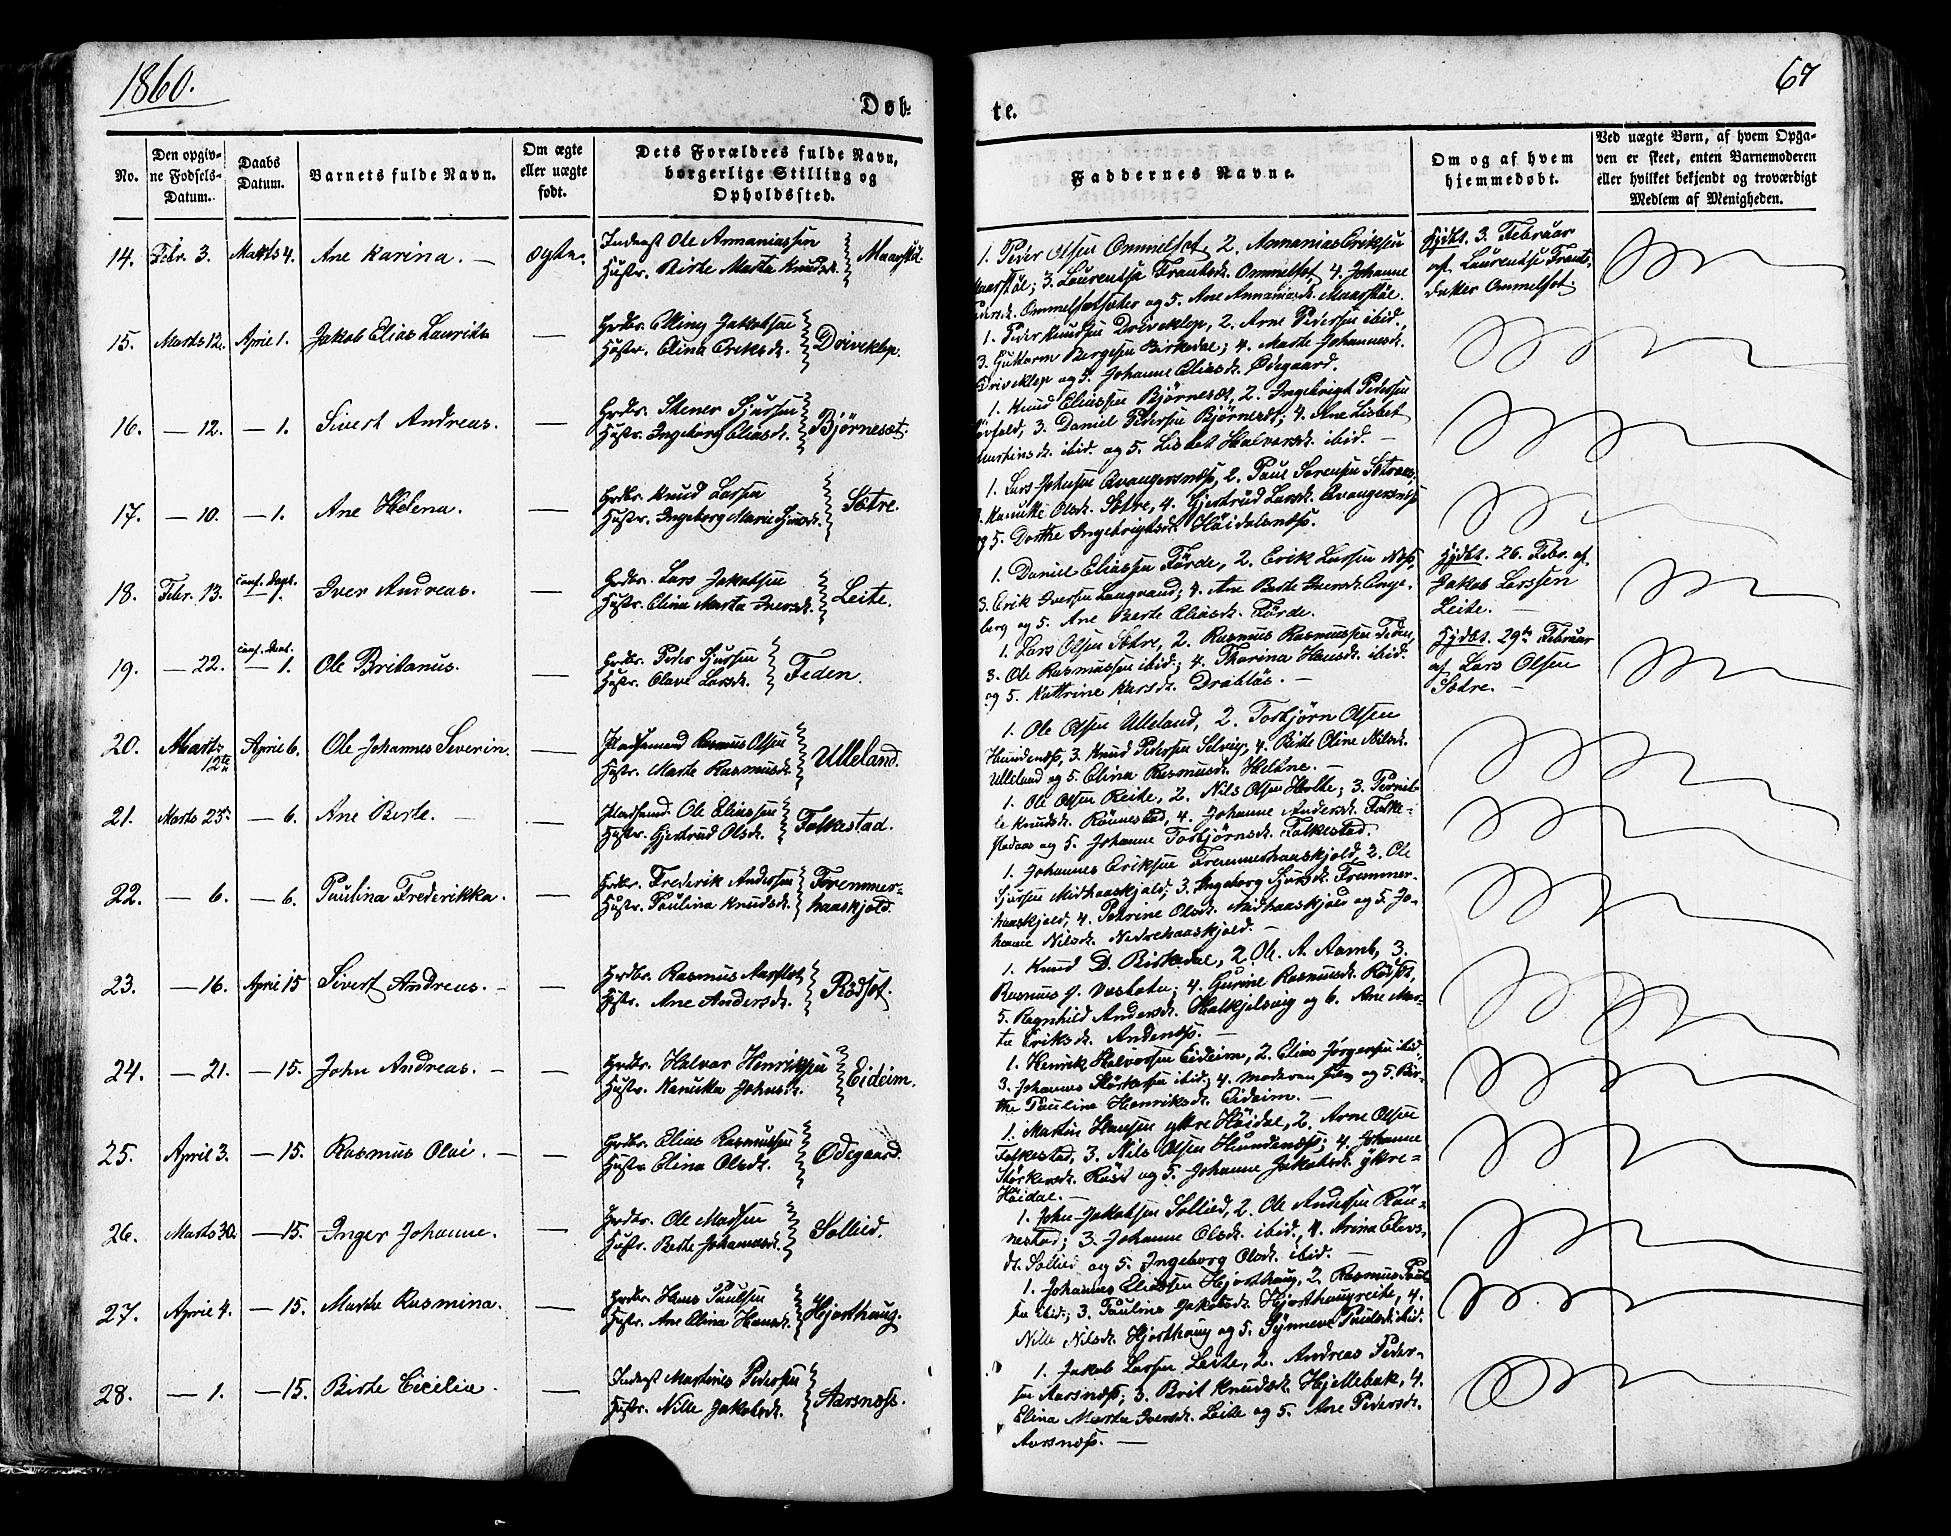 1860.
67
Døb-
te.
No.
Den opgiv-
ne Fødsels-
Datum.
Daabs
Datum.
Barnets fulde Navn.
Om ægte
eller uægte
født.
Dets Forældres fulde Navn,
borgerlige Stilling og
Opholdssted.
Faddernes Navne.
Om og af hvem
hjemmedøbt.
Ved uægte Børn, af hvem Opga-
ven er skeet, enten Barnemoderen
eller hvilket bekjendt og troværdigt
Medlem af Menigheden.
14. Febr. 3. Marts 4. Ane Karina. — ægte.
Inderst Ole Annaniassen
Hustr. Birte Marta Knudsd. Maarstöl.
1. Peder Olsen Ommelsæt, 2. Annanias Eriksen
Maarstöl; 3. Laurentse Frantsd. Ommelsæt, 4. Johanne
Ommelsætsæter og 5. Ane Annaniasd. Maarstöl.
Hjdbt. 3. Februar
af Laurentse Frants-
datter Ommelsæt.
15. Marts 12. April 1. Jakob Elias Laurits —
Grdbr. Elling Jakobsen
Hustr. Elina Eriksd. Driveklep.
1. Peder Knudsen Driveklep, 2. Arne Pedersen ibid.,
3. Guttorm Bergesen Birkedal; 4. Marte Johannesd.
Driveklep og 5. Johanne Eliasd. Ødegaard.
16. — 12. — 1. Sivert Andreas. —
Grdbr. Stener Sjursen
Hustr. Ingeborg Eliasd. Bjørnesæt.
1. Knud Eliassen Bjørnesæt, 2. Ingebrigt Pedersen
3. Daniel Pedersen Bjørnesæt; 4. Ane Lisbet
Martinsd. ibid. og 5. Lisbet Halvorsd. ibid. —
17. — 10. — 1. Ane Helena. —
Grdbr. Knud Larsen
Hustr. Ingeborg Marie Sjursd. Sætre.
1. Lars Johnsen Qvangersnæss, 2. Paul Sørensen Sætre
Olsd. Sætre, 4. Gjertrud Larsd. Qvangersnæss
og 5. Dorthe Ingebrigtsd. Höidalsnæss.
18. Febr. 13. conf. Daab. Iver Andreas. —
Grdbr. Lars Jakobsen
Hustr. Elina Marta Iversd. Leite.
1. Daniel Eliassen Førde, 2. Erik Larsen Næss,
3. Erik Iversen Langvand; 4. Ane Berte Iversd. Enge-
berg og 5. Ane Berte Eliasd. Førde.
Hjdbt. 26. Febr. af
Jakob Larssen
Leite. —
19. — 22. conf. Daab. — 1. Ole Britanus. —
Grdbr. Peder Sjursen
Hustr. Olave Larsd. Feden.
1. Lars Olsen Sætre, 2. Rasmus Rasmussen Feden,
3. Ole Rasmussen ibid; 4. Tharina Hansd. ibid.
og 5. Kathrine Larsd. Drabløs. —
Hjdbt. 29de Februar
af Lars Olsen
Sætre. —
20. Marts 12te April 6. Ole Johannes Severin. —
Pladsmand Rasmus Olsen
Hustr. Marte Rasmusd. Ulleland.
1. Ole Olsen Ulleland, 2. Torbjørn Olsen
Hundenæss, 3. Knud Pedersen Selvig, 4. Birte Oline Nilsd.
Ulleland og 5. Elina Rasmusd. Heltne. —
21. Marts 23de — 6. Ane Berte. —
Pladsmd. Ole Eliassen
Hustr. Gjertrud Olsd. Folkestad.
1. Ole Olsen Reite, 2. Nils Olsen Holte; 3. Pernil-
le Knudsd. Rönnestad, 4. Johanne Andersd. Folke-
stadaas og 5. Johanne Torbjørnsd. Folkestad.
22. — 6. — 6. Paulina Frederikka. —
Grdbr. Frederik Andersen
Hustr. Paulina Knudsd. Fremmer-
haaskjold.
1. Johannes Eriksen Fremmerhaaskjold, 2. Ole
Sjursen Midhaaskjold; 3. Ingeborg Sjursd. Fremmer-
haaskjold, 4. Petrine Olsd. Midhaaskjold og 5. Jo-
hanne Nilsd. Nedrehaaskjold. —
23. — 16. April 15 Sivert Andreas. —
Grdbr. Rasmus Aarflot
Hustr. Ane Andersd. Rödsæt.
1. Knud D. Birkedal, 2. Ol. A. Aamb, 3.
Rasmus J. 4. Gurine Rasmusd. Rödsæt,
5. Ragnhild Andersd. Halkjelsvig og 6. Ane Mar-
ta Eriksd. Andenæss. —
24. — 21. — 15. John Andreas. —
Grdbr. Halvar Henriksen
Hustr. Nanuka Johnsd. Eideim.
1. Henrik Halvorsen Eideim, 2. Elias Jørgensen ibid.,
3. Johannes Størkersen ibid; 4. moderen selv og 5. Bir-
the Pauline Henriksd. Eideim. —
25. April 3. — 15. Rasmus Olai. —
Grdbr. Elias Rasmussen
Hustr. Elina Olsd. Ødegaard.
1. Martin Hansen yttre Höidal, 2. Arne Olsen
Folkestad, 3. Nils Olsen Hundenæss; 4. Johanne
Størkersd. og 5. Johanne Jakobsd. yttre-
Höidal. —
26. Marts 30. — 15. Inger Johanne. —
Grdbr. Ole Madsen
Hustr. Berte Johannesd. Sollied.
1. John Jakobsen Sollied, 2. Ole Andersen Rön-
nestad; 3. Johanne Olsd. ibid., 4. Arina Elevs-
d. Sollied og 5. Ingeborg Olsd. ibid. —
27. April 4. — 15. Marthe Rasmina. —
Grdbr. Hans Paulsen
Hustr. Ane Elina Hansd. Hjorthaug.
1. Johannes Eliassen Hjorthaug, 2. Rasmus Paul-
sen ibid; 3. Pauline Jakobsd. Hjorthaugreite, 4.
Nille Nilsd. Hjorthaug og 5. Synneve Paulsd. ibid.
28. — 1. — 15. Birte Cicilia. —
Inderst Martines Pedersen
Hustr. Nille Jakobsd. Aarsnæss.
1. Jakob Larsen Leite, 2. Andreas Peder-
sen Aarsnæss; 3. Brit Knudsd. Hjellebak, 4.
Elina Marta Iversd. Leite og 5. Ane Pedersd.
Aarsnæss. —